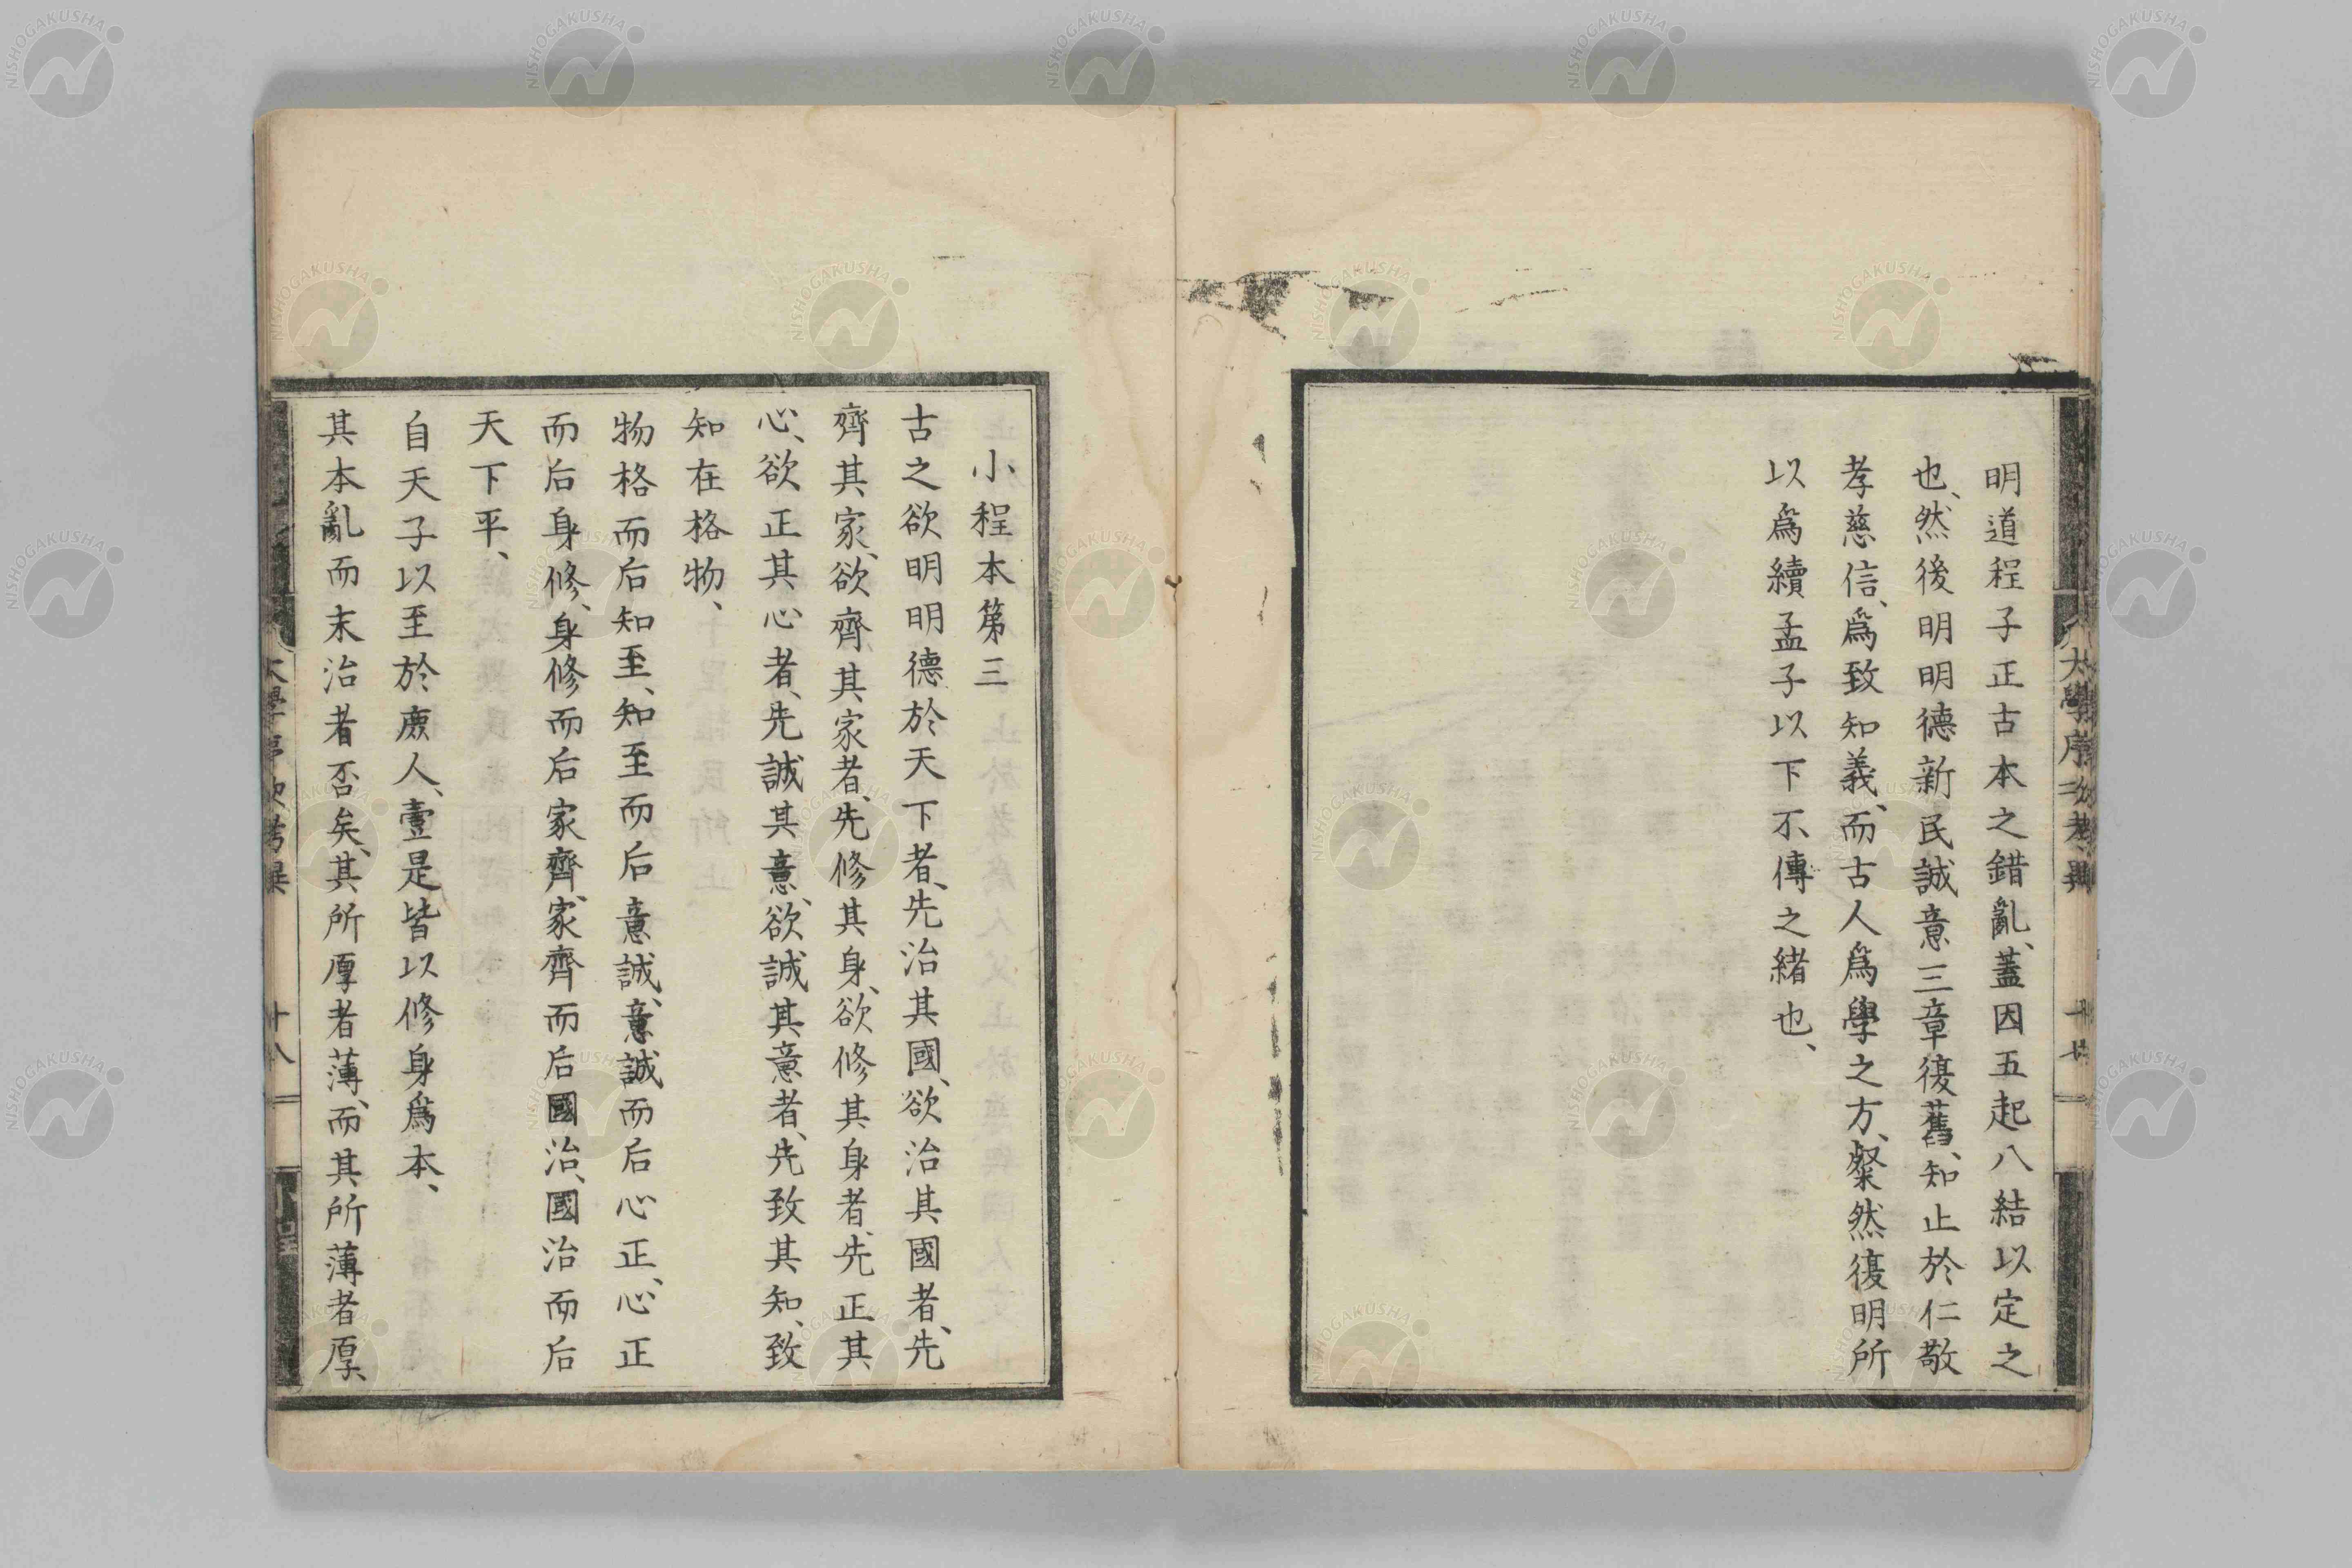 大學序次考異
明道程子正古本之錯亂、蓋因五起八結以定之
也、然後明明德新民誠意三章復舊、知止於仁敬
孝慈信、爲致知義、而古人爲學之方、粲然復明所
以爲續孟子以下不傳之緒也、
小程本第三
古之欲明明德於天下者、先治其國、欲治其國者、先
齊其家、欲齊其家者、先修其身、欲修其身者、先正其
心、欲正其心者、先誠其意、欲誠其意者、先致其知、致
知在格物、
物格而后知至、知至而后意誠、意誠而后心正、心正
而后身修、身修而后家齊、家齊而后國治、國治而后
天下平、
自天子以至於庶人、壹是皆以修身爲本、
其本亂而末治者否矣、其所厚者薄、而其所薄者厚、
大學序次考異
十八
小程
NISHOGAKUSHA